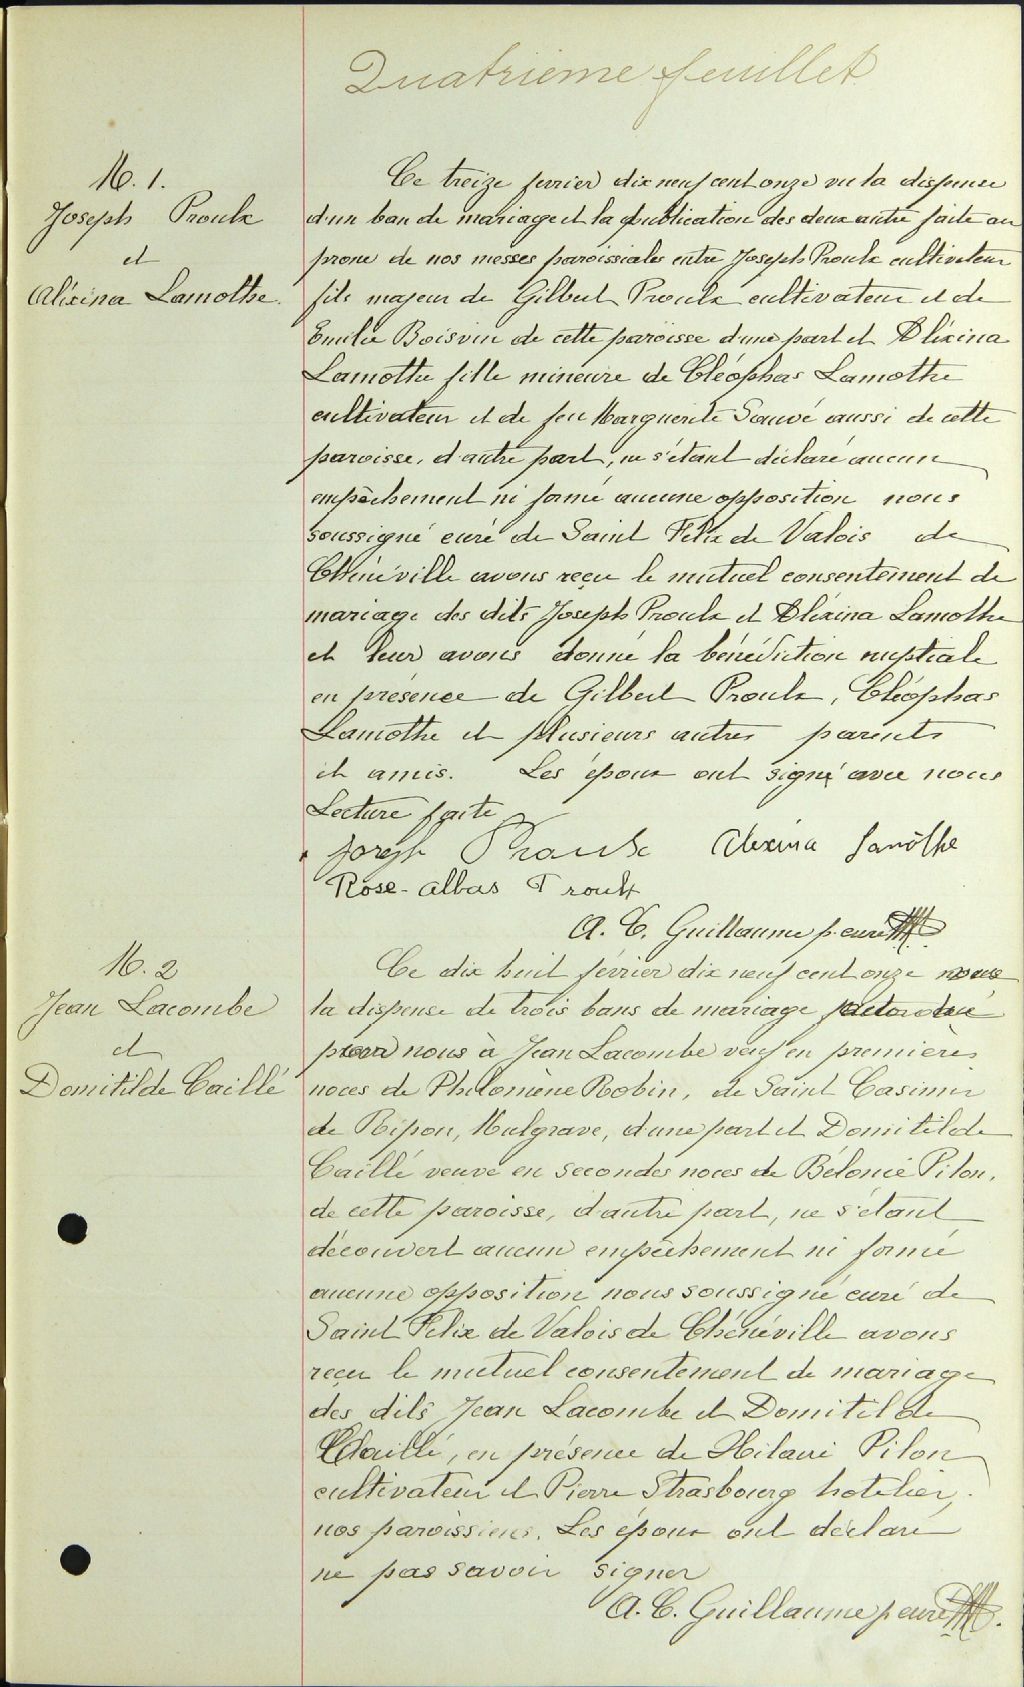 Quatrieme feuillet
M. 1.
Joseph Proulx
et
Aléxina Lamothe.
Ce treize fevrier dix neuf cent onze vu la dispense
d'un ban de mariage et la publication des deux autre faite au
prone de nos messes paroissiales entre Joseph Proulx cultivateur
fils majeur de Gilbert Proulx cultivateur et de
Emilie Boisvin de cette paroisse d'une part et Aléxina
Lamothe fille mineure de Cléophas Lamothe
cultivateur et de feu Marguerite Sauvé aussi de cette
paroisse, d'autre part, ne s'étant déclaré aucun
empêchement ni formé aucune opposition nous
soussigné curé de Saint Felix de Valois de
Chénéville avons reçu le mutuel consentement de
mariage des dits Joseph Proulx et Aléxina Lamothe
et leur avons donné la bénédiction nuptiale
en présence de Gilbert Proulx, Cléophas
Lamothe et plusieurs autres parents
et amis. Les époux ont signé avec nous
Lecture faite
Joseph Proulx Alexina Lamôthe
Rose-albas Proulx
A. C. Guillaume p. curé
M. 2
Jean Lacombe
et
Domitilde Caillé
Ce dix huit février dix neuf cent onze
la dispense de trois bans de mariage
par nous à Jean Lacombe veuf en premières
noces de Philomène Robin, de Saint Casimir
de Ripon, Mulgrave, d'une part et Domitilde
Caillé veuve en secondes noces de Bélonie Pilon,
de cette paroisse, d'autre part, ne s'étant
découvert aucun empêchement ni formé
aucune opposition nous soussigné curé de
Saint Felix de Valois de Chénéville avons
reçu le mutuel consentement de mariage
des dits Jean Lacombe et Domitilde
Caillé, en présence de Hilaire Pilon
cultivateur et Pierre Strasbourg hotelier,
nos paroissiens. Les époux ont déclaré
ne pas savoir signer
A. C. Guillaume p curé